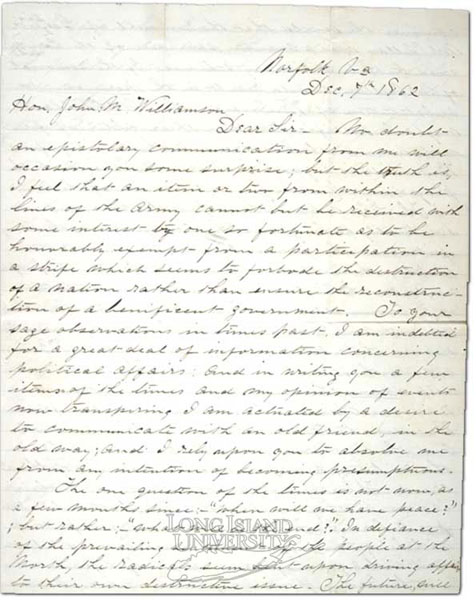 Norfolk, Va
Dec. 7th 1862
Hon. John M. Williamson
Dear Sir - No doubt
an epistolary communication from me will
occasion you some surprise; but the truth is,
I feel that an item or two from within the
lines of the Army cannot but be received with
some interest by one so fortunate as to be
honorably exempt from a participation in
a strife which seems to forbode the destruction
of a nation rather than ensure the reconstruc-
tion of a benificent government. To your
sage observations in times past, I am indebted
for a great deal of information concerning
political affairs: and in writing you a few
items of the times and my opinion of events
now transpiring I am actuated by a desire
to communicate with an old friend, in the
old way; and I rely upon you to absolve me
from any intention of becoming presumptuous.
The one question of the times is not now, as
a few months since:- "when will we have peace?"
; but rather:- "what the end?". In defiance
of the prevailing of the people at the
North, the radicals seem bent upon driving affairs
to their own destructive issue. The future, will
LONG ISLAND
UNIVERSITY